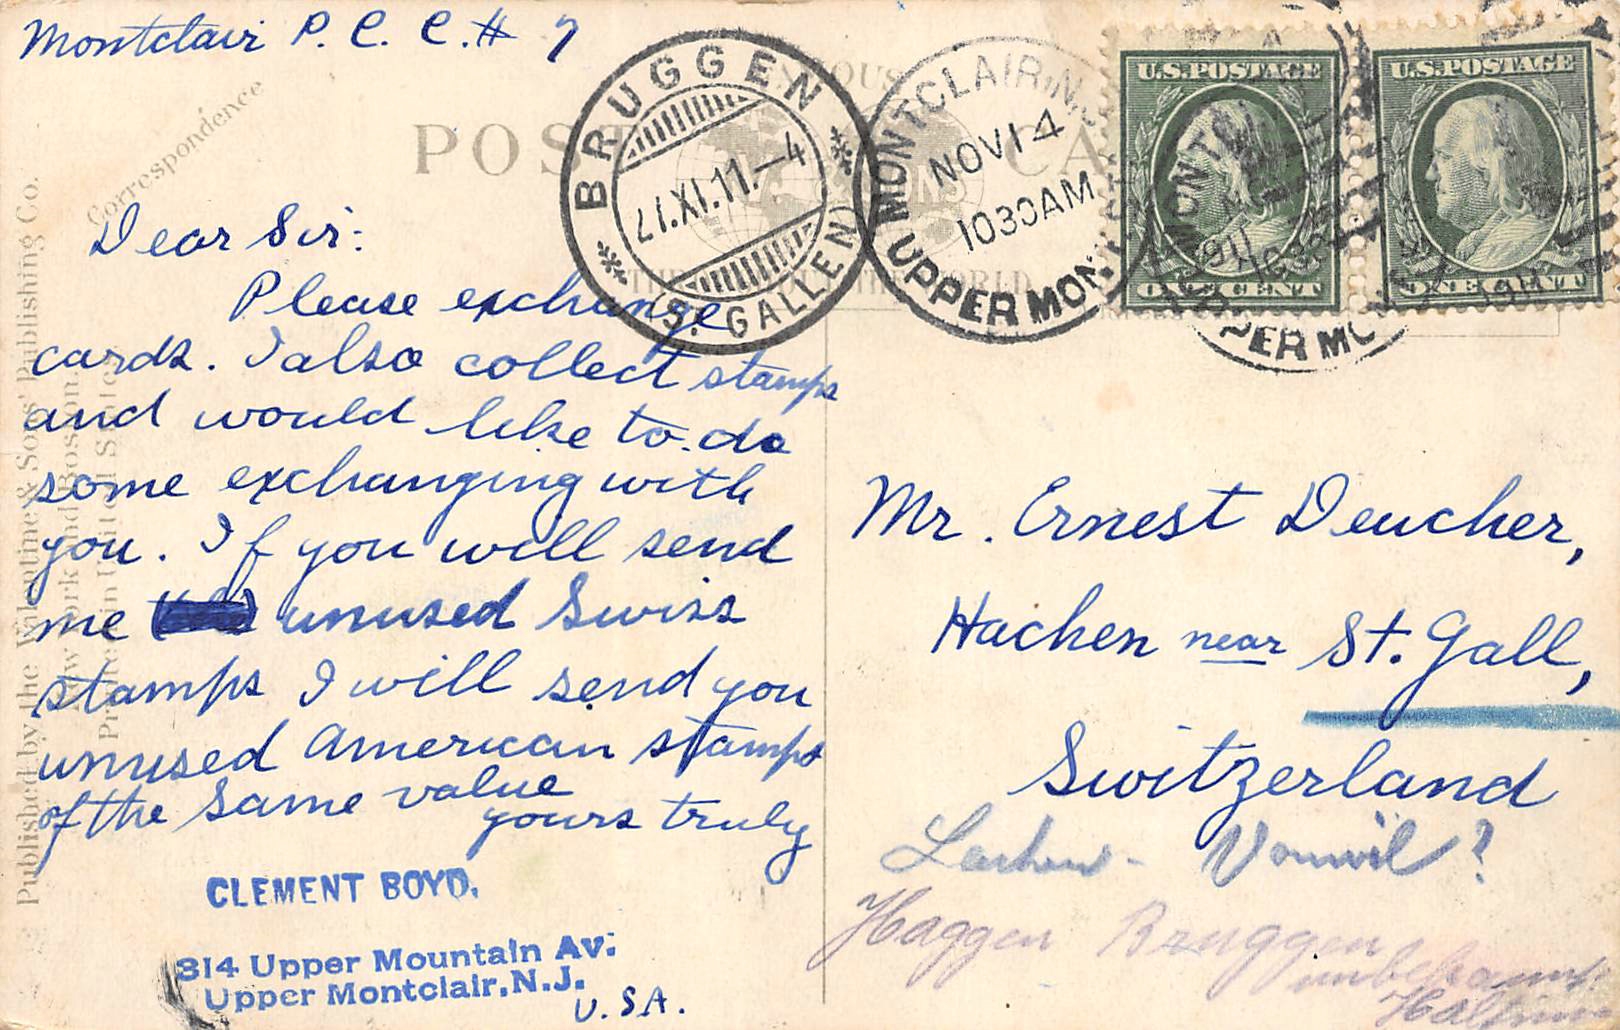 Montclair P. C. C. # 7
Correspondence
POST CA
BRUGGEN
(ST. GALLEN)
27.XI.11.–4
MONTCLAIR, N.J.
NOV 14
1030 AM
UPPER MONT
U.S. POSTAGE
ONE CENT
U.S. POSTAGE
ONE CENT
Dear Sir:
Please exchange
cards. I also collect stamps
and would like to do
some exchanging with
you. If you will send
me unused Swiss
stamps I will send you
unused American stamps
of the same value
yours truly
CLEMENT BOYD.
314 Upper Mountain Av.
Upper Montclair, N.J.
U.S.A.
Mr. Ernest Deucher,
Hachen near St. Gall,
Switzerland
Lachen - Vonwil?
Haggen Bruggen
unbekannt
Published by the Valentine & Sons' Publishing Co.
New York and Boston
Printed in United States